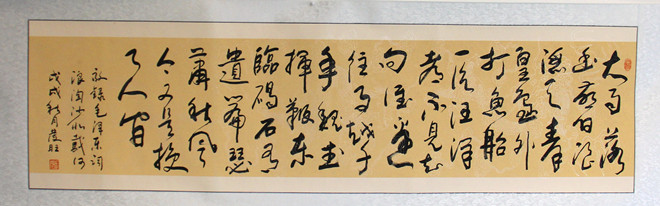 大雨落
幽燕白浪
滔天秦
皇島外
打魚船
一片汪洋
都不見知
向谁邊
往事越千
年魏武
揮鞭東
臨碣石有
遺篇瑟
蕭秋風
今又是換
了人间
敬錄毛澤東詞
浪淘沙北戴河
戊戌秋月